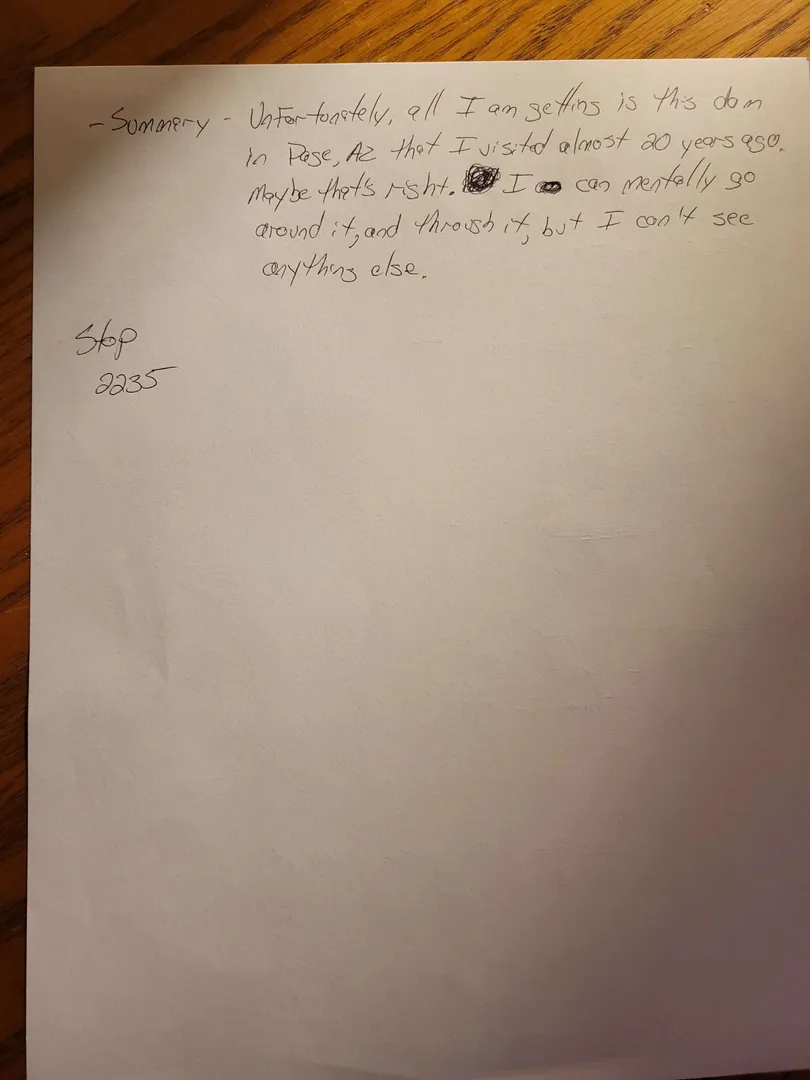 - Summary - Unfortonately, all I am getting is this dam
in Page, AZ that I visited almost 20 years ago.
Maybe that's right. I can mentally go
around it, and through it, but I can't see
anything else.
Stop
2235